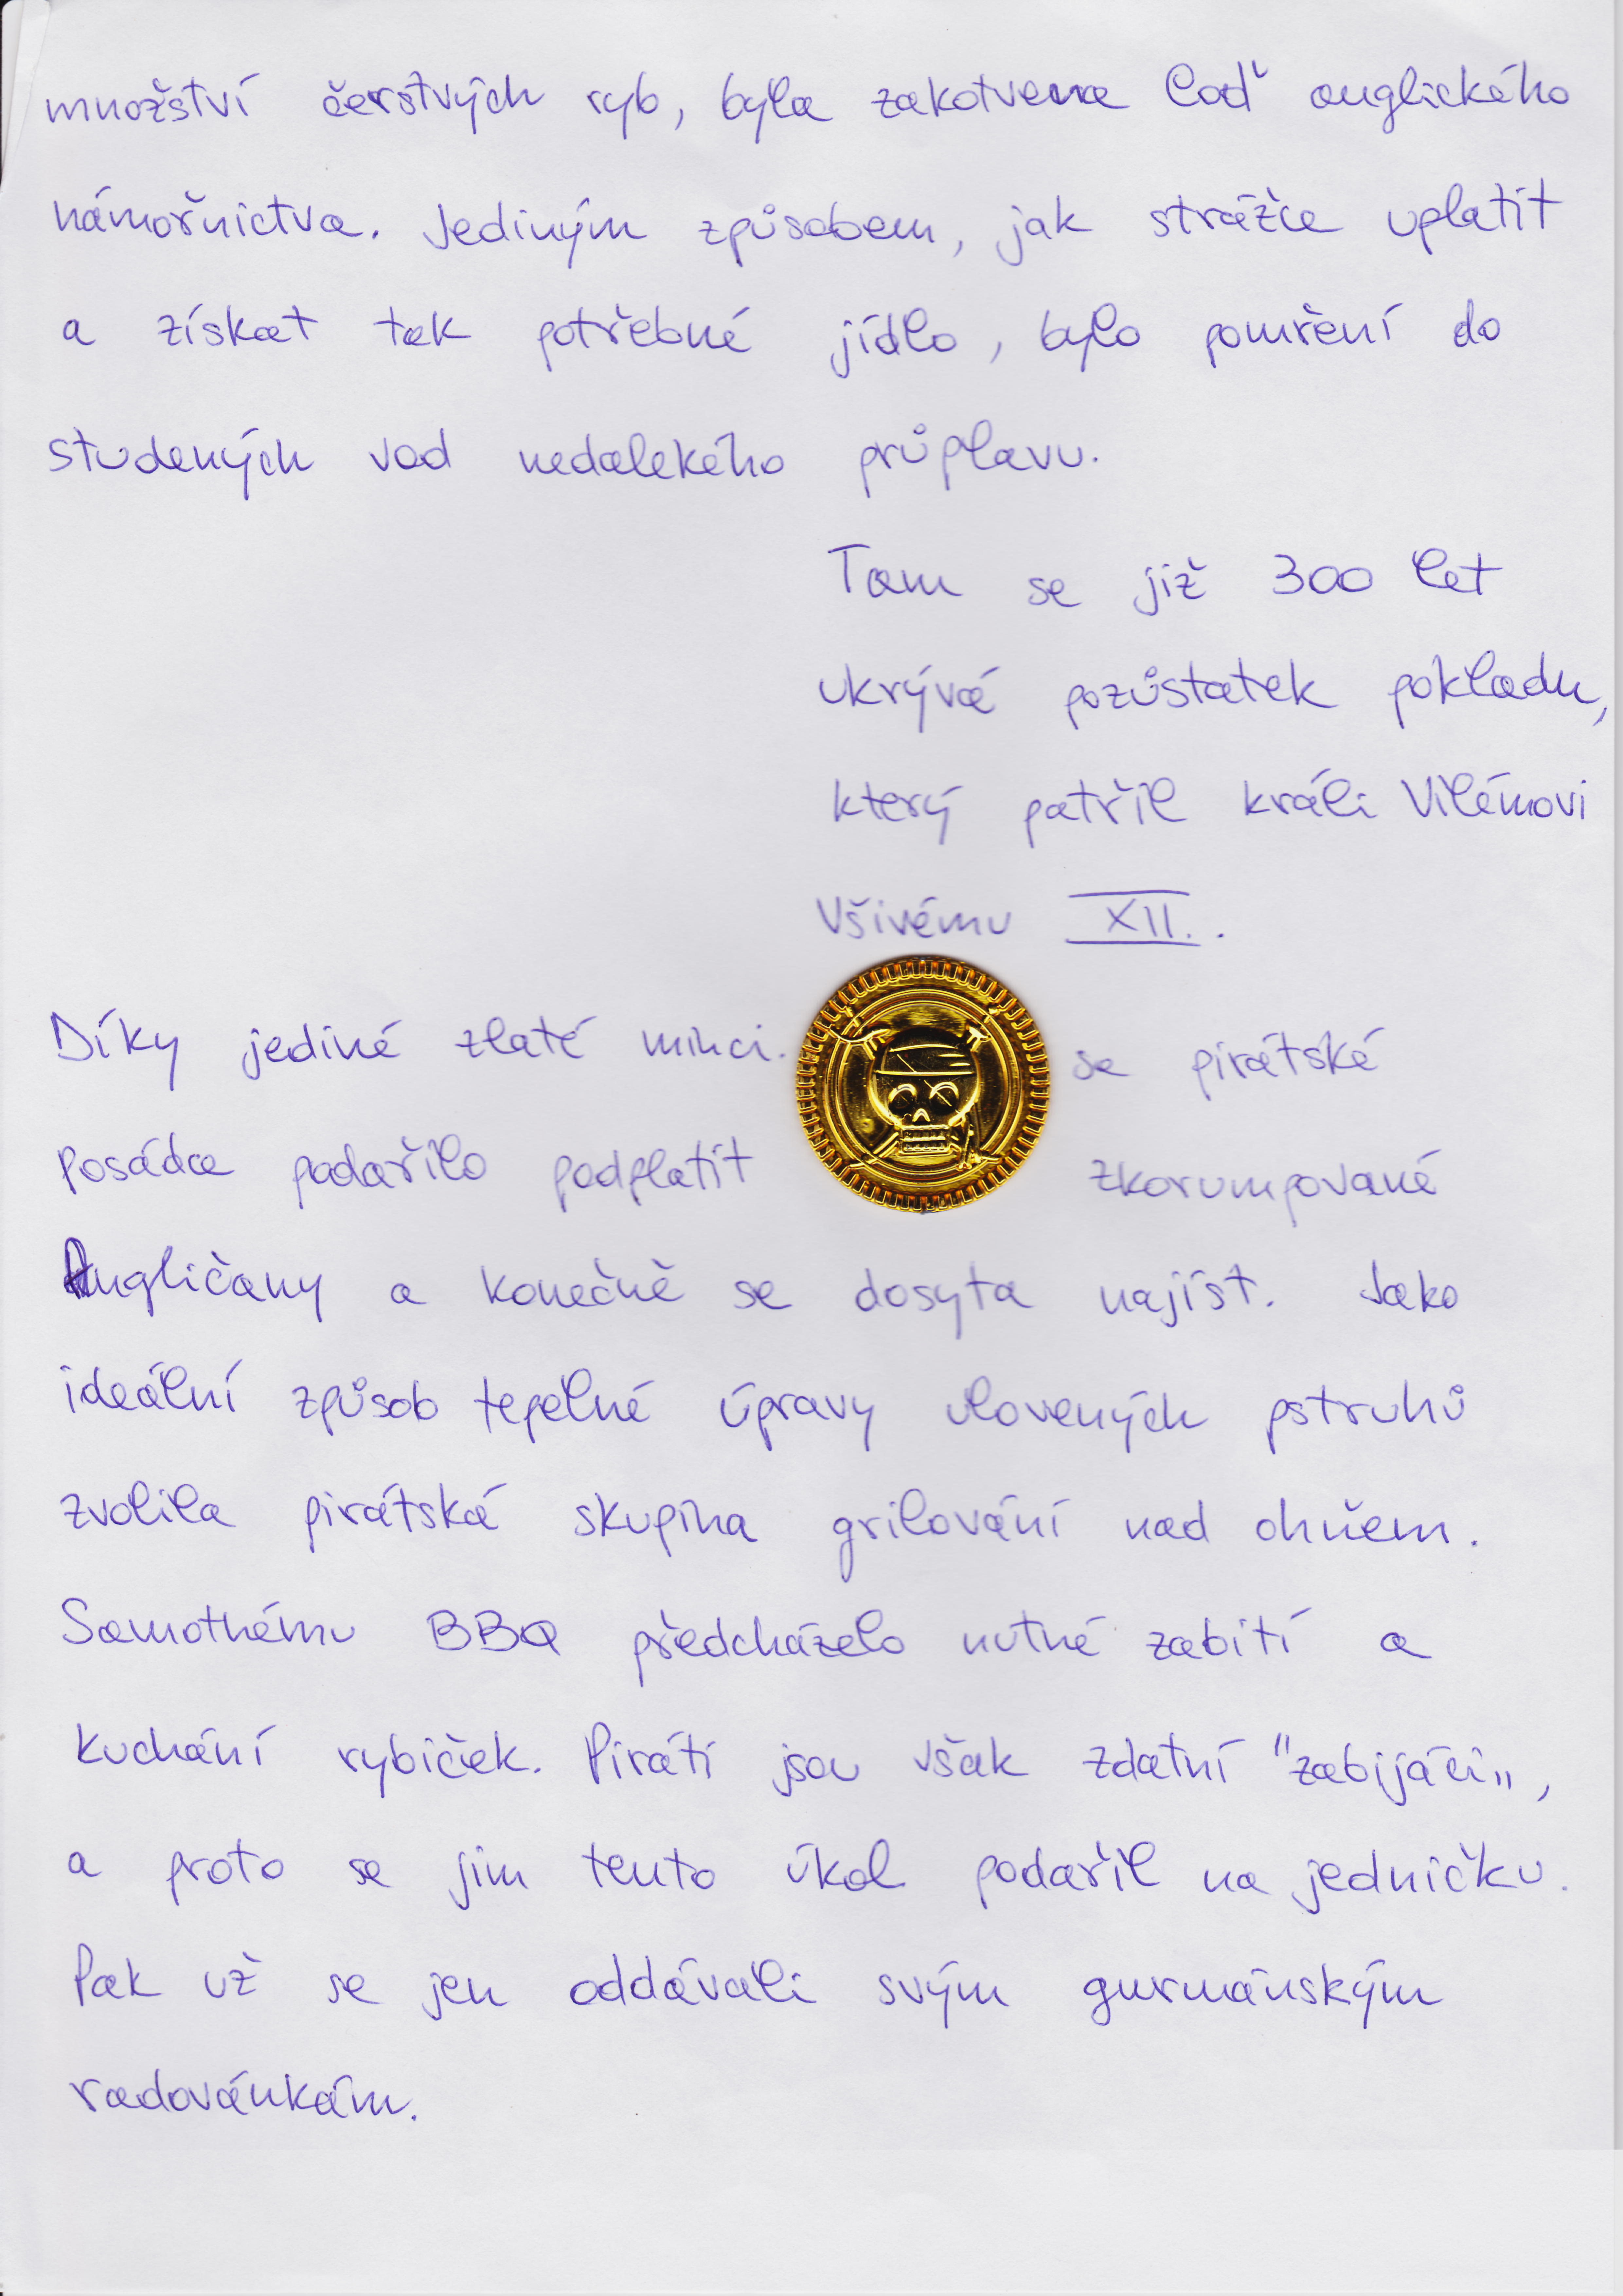 množství čerstvých ryb, byla zakotvena loď anglického
námořnictva. Jediným způsobem, jak strážce uplatit
a získat tak potřebné jídlo, bylo pomření do
studených vod nedalekého průplavu.
Tam se již 300 let
ukrývá pozůstatek pokladu,
který patřil králi Vilémovi
Všivému XII..
Díky jediné zlaté minci. se pirátské
posádce podařilo podplatit zkorumpované
Angličany a konečně se dosyta najíst. Jako
ideální způsob tepelné úpravy ulovených pstruhů
zvolila pirátská skupina grilování nad ohněm.
Samotnému BBQ předcházelo nutné zabití a
kuchání rybiček. Piráti jsou však zdatní "zabijáci",
a proto se jim tento úkol podařil na jedničku.
Pak už se jen oddávali svým gurmánským
radovánkám.